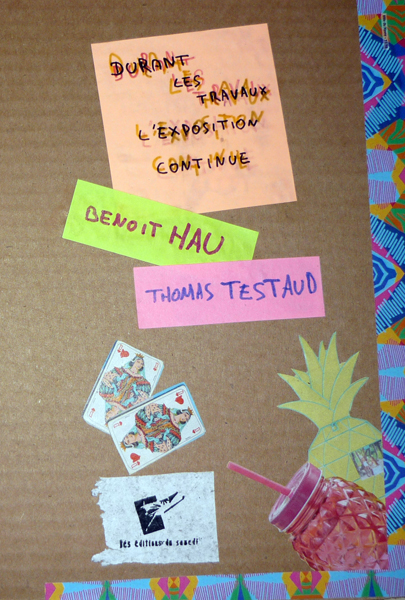 DURANT
LES
TRAVAUX
L'EXPOSITION
CONTINUE
BENOIT HAU
THOMAS TESTAUD
les éditions du samedi